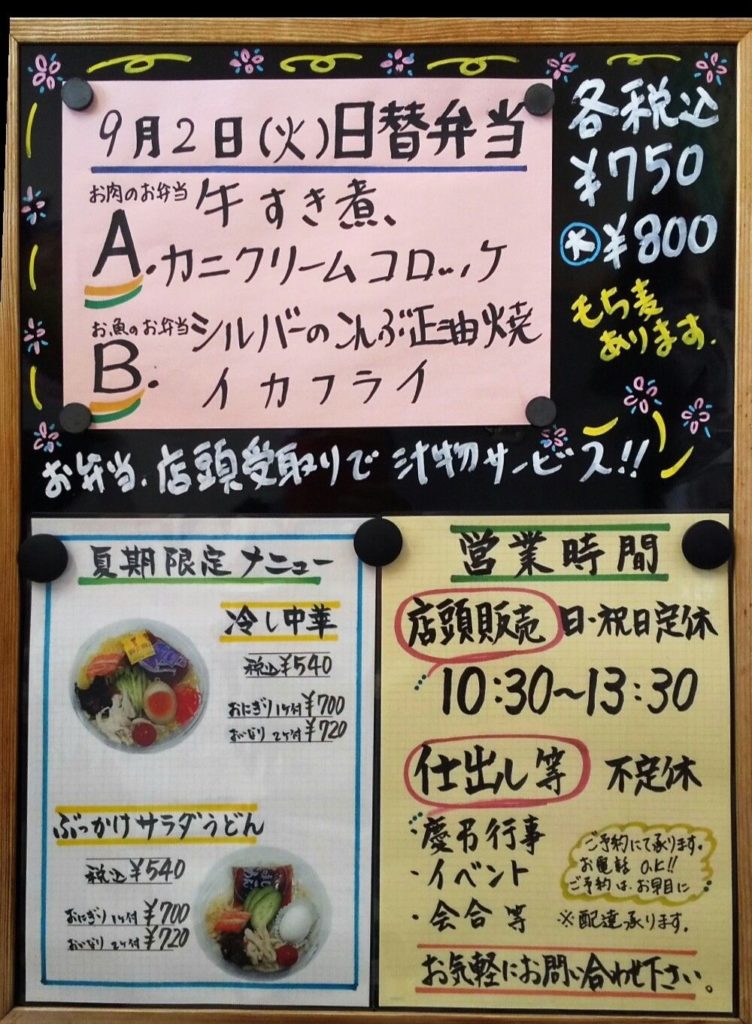 9月2日(火)日替弁当
お肉のお弁当
A. 牛すき煮、
カニクリームコロッケ
お魚のお弁当
B. シルバーのこんぶ正油焼
イカフライ
各税込
¥750
大 ¥800
もち麦
あります.
お弁当.店頭受取りで 汁物サービス!!
夏期限定メニュー
冷し中華
税込¥540
おにぎり1ケ付¥700
おいなり 2ケ付¥720
ぶっかけサラダうどん
税込 ¥540
おにぎり1ケ付 ¥700
おいなり 2ケ付 ¥720
営業時間
店頭販売 日・祝日定休
10:30~13:30
仕出し等 不定休
・慶弔行事
・イベント
・会合等
ご予約にて承ります。
お電話 O.K!!
ご予約は、お早目に
※配達承ります.
お気軽にお問い合わせ下さい。